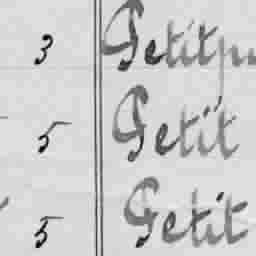 3 Petitpu
5 Petit
5 Petit